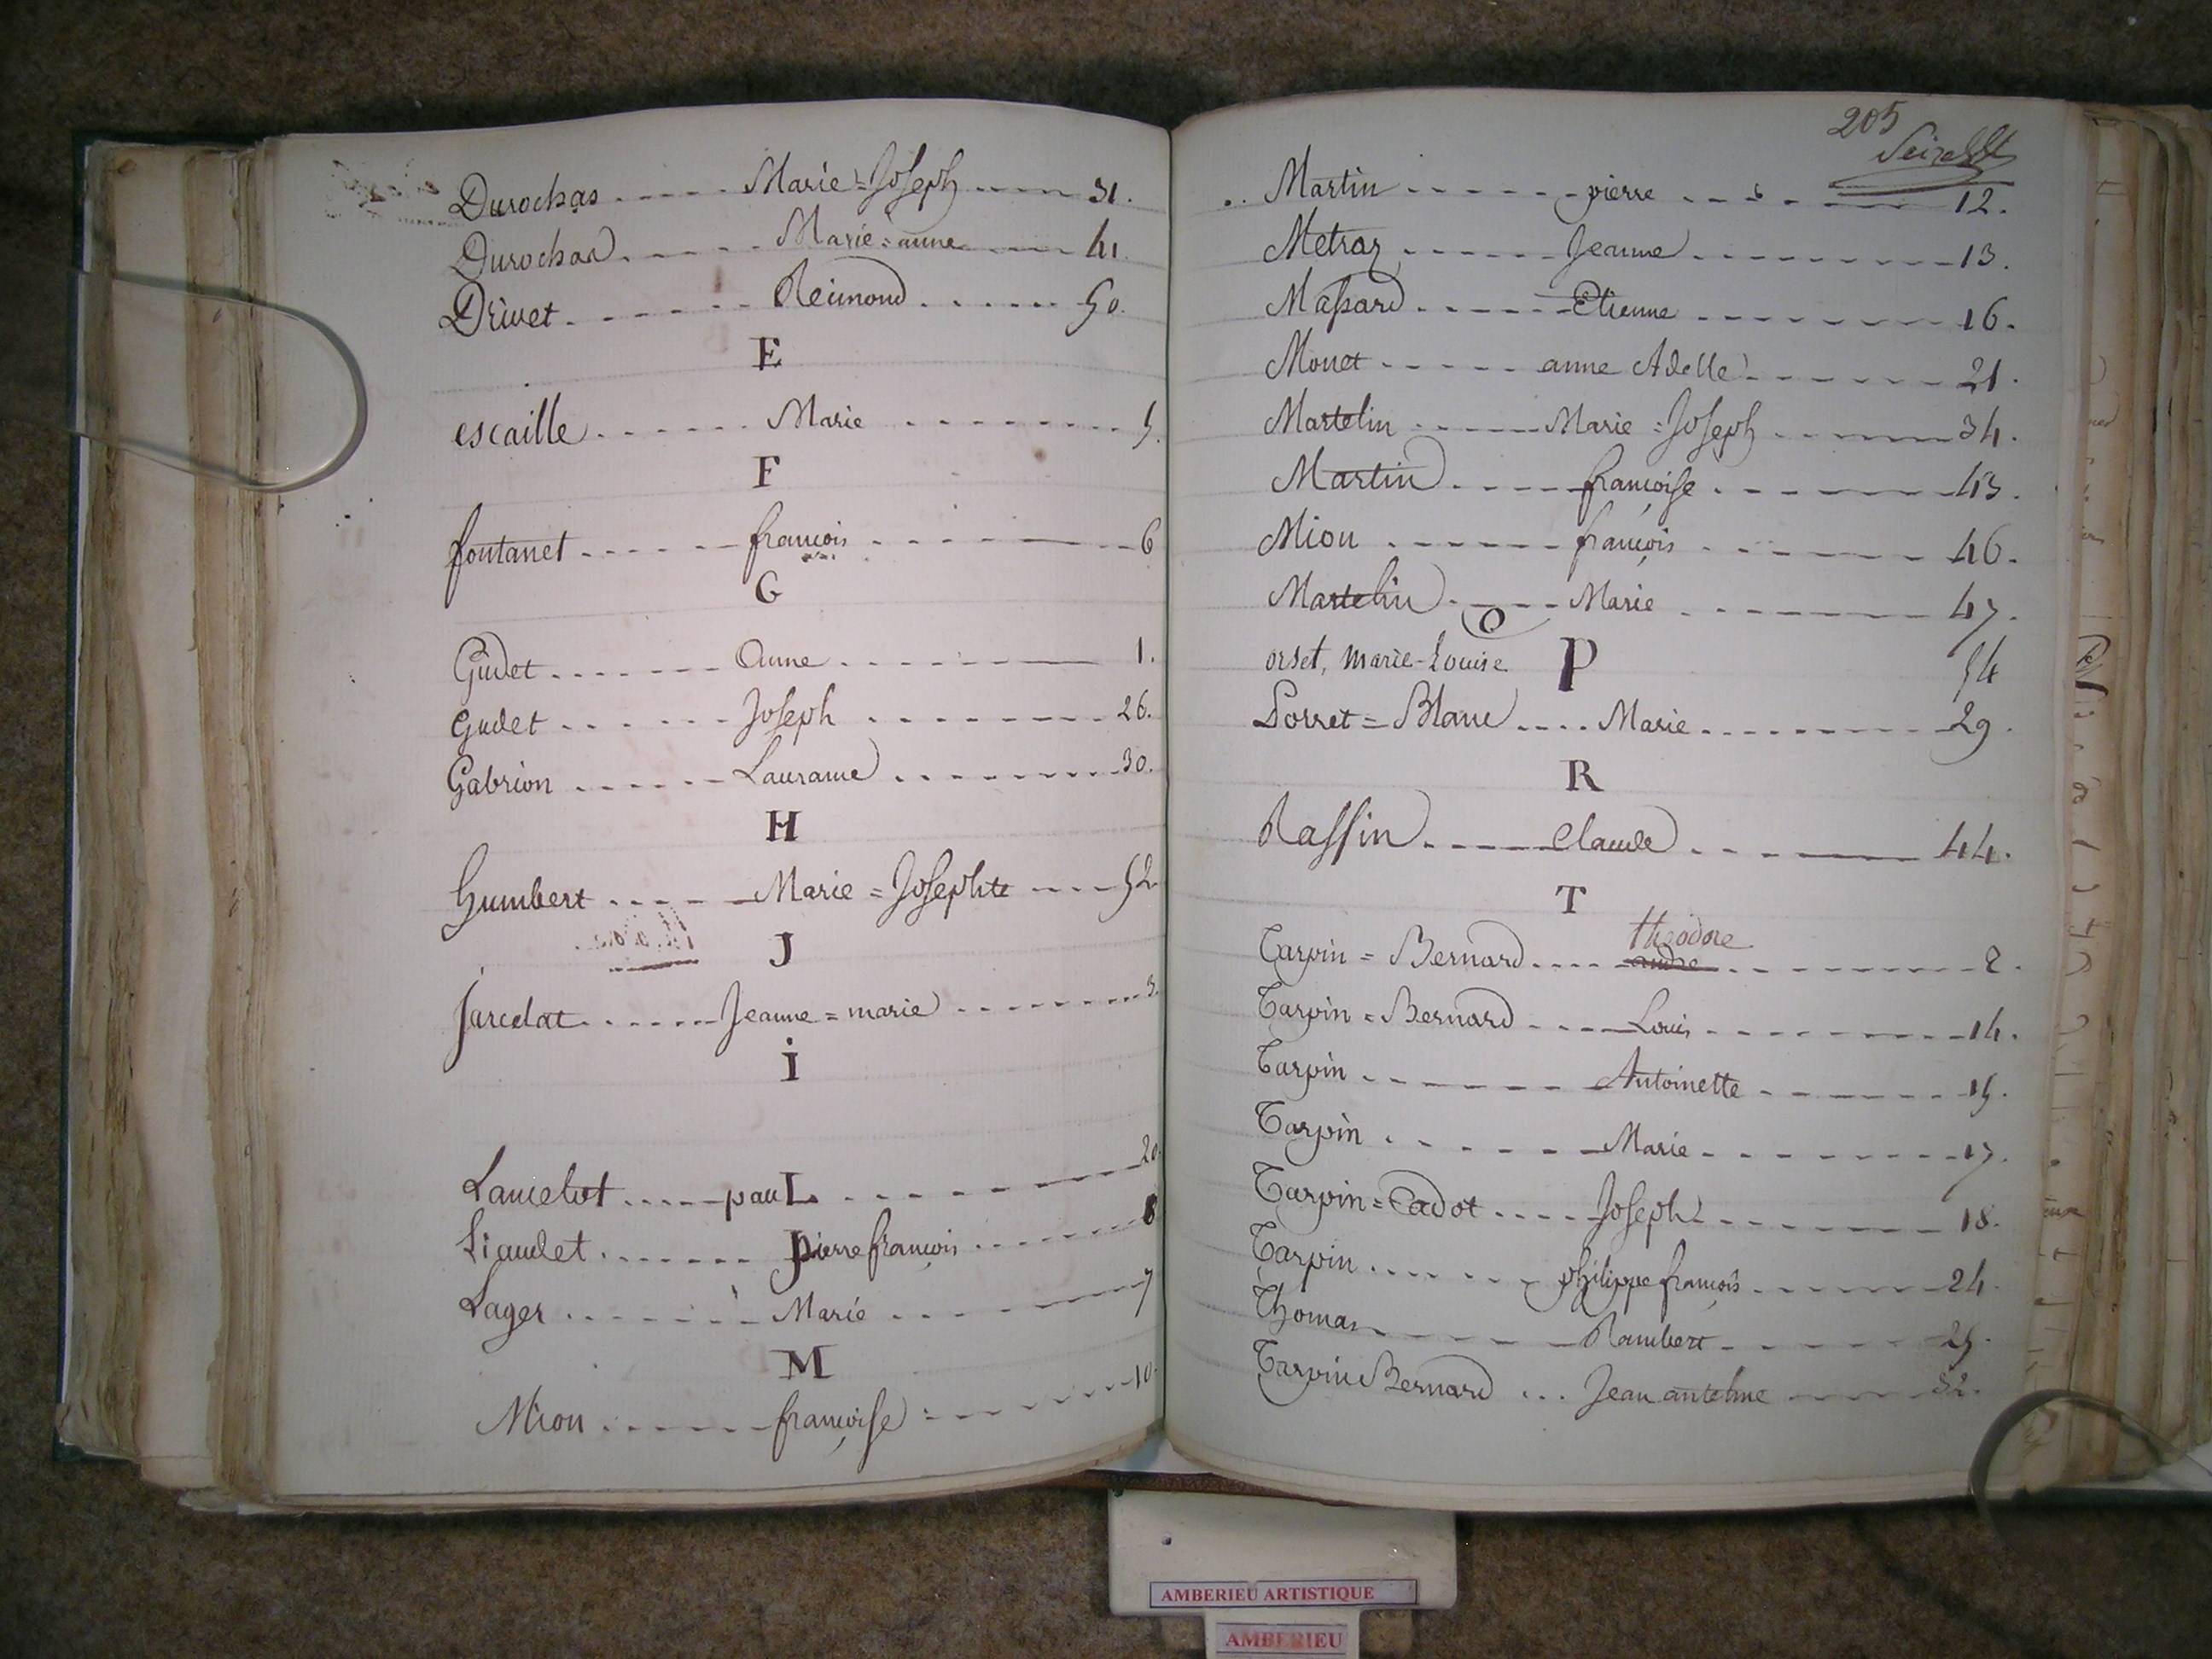 Durochas Marie=Joseph 31.
Durochas Marie=anne 41.
Drivet Reimond 50.
E
escaille Marie 5.
F
fontanet francois 6
G
Gudet anne 1.
Gudet Joseph 26.
Gabrion Lauranne 30.
H
humbert Marie=Josephte 52
J
jarcelat Jeanne=marie 3.
i
Lancelot paul 20
L
Liaudet pierre françois 8
Lager Marie 7
M
Mion françoise 10.
205
Martin pierre 12.
Metraz Jeanne 13.
Massard Etienne 16.
Monet anne Adelle 21.
Martelin Marie=Joseph 34.
Martin françoise 43.
Mion françois 46.
Martelin Marie 47.
O
orset, marie-Louise 54
P
Porret=Blanc Marie 29.
R
Raffin Claude 44.
T
theodore
Tarpin=Bernard andre 2.
Tarpin=Bernard Louis 14.
Tarpin Antoinette 15.
Tarpin Marie 17.
Tarpin=Cadot Joseph 18.
Tarpin philippe françois 24.
Thomas Rambert 25.
Tarpin Bernard Jean antelme 32.
AMBERIEU ARTISTIQUE
AMBERIEU